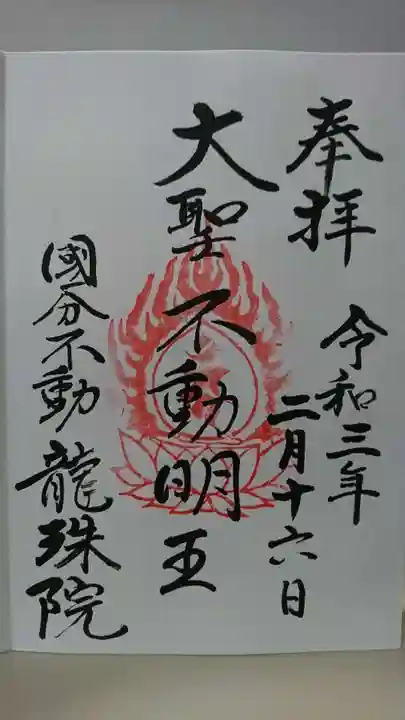 奉拝
令和三年
二月十六日
大聖不動明王
國分不動 龍珠院